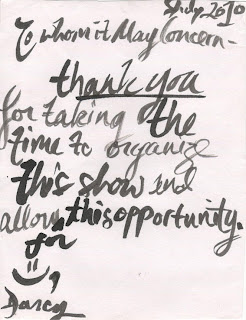 July 2010
To whom it May Concern-
thank you
for taking the
time to organize
this show and
allow this opportunity.
for
Darcy